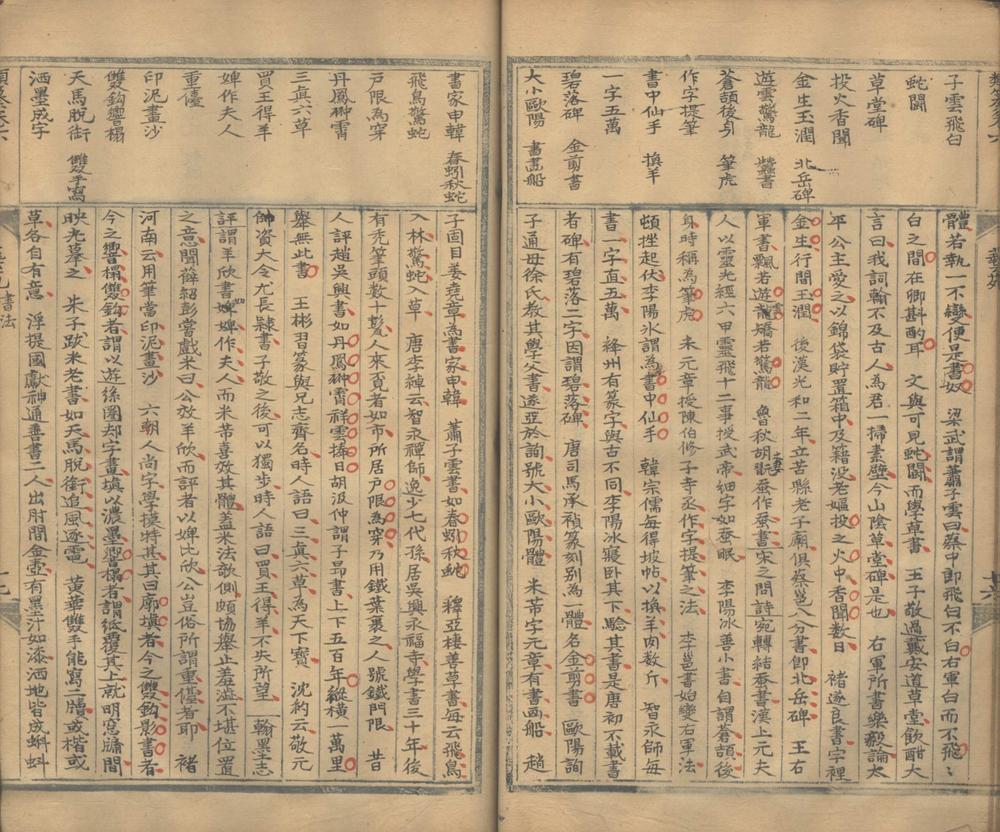 子雲飛白
蛇鬪
草堂碑
投火香聞
金生玉潤 北岳碑
遊雲驚龍 蠶書
蒼頡後身 筆虎
作字提筆
書中仙手 換羊
一字五萬
碧落碑 金剪書
大小歐陽 書畫船
體若執一不變便是書奴 梁武謂蕭子雲曰蔡中郎飛白不白右軍白而不飛飛
白之間在卿斟酌耳 文與可見蛇鬪而學草書 王子敬過戴安道草堂飲酣大
言曰我詞翰不及古人為君一掃素壁今山陰草堂碑是也 右軍所書樂毅論太
平公主愛之以錦袋貯置箱中及籍沒老嫗投之火中香聞數日 褚遂良書字裡
金生行間玉潤 後漢光和二年立苦縣老子廟俱蔡邕八分書即北岳碑 王右
軍書飄若遊龍矯若驚龍 魯秋胡妻翫蚕作蚕書宋之問詩宛轉結蚕書漢上元夫
人以靈光經六甲靈飛十二事授武帝細字如蚕眠 李陽冰善小書自謂蒼頡後
身時稱為筆虎 米元章授陳伯修子寺丞作字提筆之法 李邕書始變右軍法
頓挫起伏李陽冰謂為書中仙手 韓宗儒每得坡帖以換羊肉数斤 智永師每
書一字直五萬 絳州有篆字與古不同李陽冰寢卧其下驗其書是唐初不載書
者碑有碧落二字因謂碧落碑 唐司馬承禎篆刻別為一體名金剪書 歐陽詢
子通母徐氏教其學父書遂亞於詢號大小歐陽體 米芾字元章有書画船 趙
書家申韓 春蚓秋蛇
飛鳥驚蛇
户限為穿
丹鳳啣霄
三真六草
買王得羊
婢作夫人
重儓
印泥畫沙
雙鈎響榻
天馬脫銜 雙手寫
洒墨成字
子固目姜堯章為書家申韓 蕭子雲書如春蚓秋蛇 釋亞棲善草書每云飛鳥
入林驚蛇入草 唐李綽云智永禪師逸少七代孫居吳興永福寺學書三十年後
有禿筆頭数十甕人來覓者如市所居户限為穿乃用鐵葉裹之人號鐵門限 昔
人評趙吳興書如丹鳳啣霄祥雲捧日胡汲仲謂子昂書上下五百年縱橫一萬里
舉無此書 王彬習篆與兄志齊名時人語曰三真六草為天下寶 沈約云敬元
帥資大令尤長隷書子敬之後可以獨步時人語曰買王得羊不失所望 翰墨志
評謂羊欣書婢作夫人而米芾喜效其體蓋米法欹側頗協舉止羞澁不堪位置
之意聞薛紹彭嘗戯米曰公放羊欣而評者以婢比欣公豈俗所謂重儓者耶 褚
河南云用筆當印泥畫沙 六朝人尚字學摸特甚其曰廓填者今之雙鈎影書者
今之響榻雙鈎者謂以遊絲圈却字畫填以濃墨響榻者謂紙覆其上就明窓牖間
映光摹之 朱子跋米老書如天馬脫銜追風逐電 黃華雙手能寫二牘或楷或
草各自有意 浮提國獻神通善書二人出肘間金壺有墨汁如漆洒地皆成蝌蚪
書法